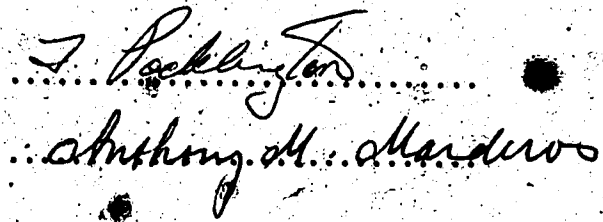 T. Pocklington
Anthony M. Marderos